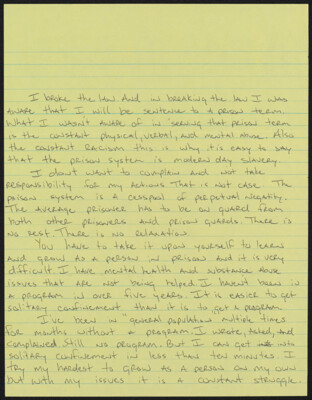 I broke the law. And in breaking the law I was
aware that I will be sentence to a prison term.
What I wasn't aware of in serving that prison term
is the constant physical, verbal, and mental abuse. Also
the constant racism this is why it is easy to say
that the prison system is modern day slavery.
I don't want to complain and not take
responsibility for my actions. That is not case. The
prison system is a cesspool of perpetual negativity.
The average prisoner has to be on guard from
both other prisoners and prison guards. There is
no rest. There is no relaxation.
You have to take it upon yourself to learn
and grow as a person in prison and it is very
difficult. I have mental health and substance abuse
issues that are not being helped. I haven't been in
a program in over five years. It is easier to get
solitary confinement than it is to get a program.
I've been in general population multiple times
for months without a program. I wrote, asked, and
complained still no program. But I can get into
solitary confinement in less than ten minutes. I
try my hardest to grow as a person on my own
but with my issues it is a constant struggle.